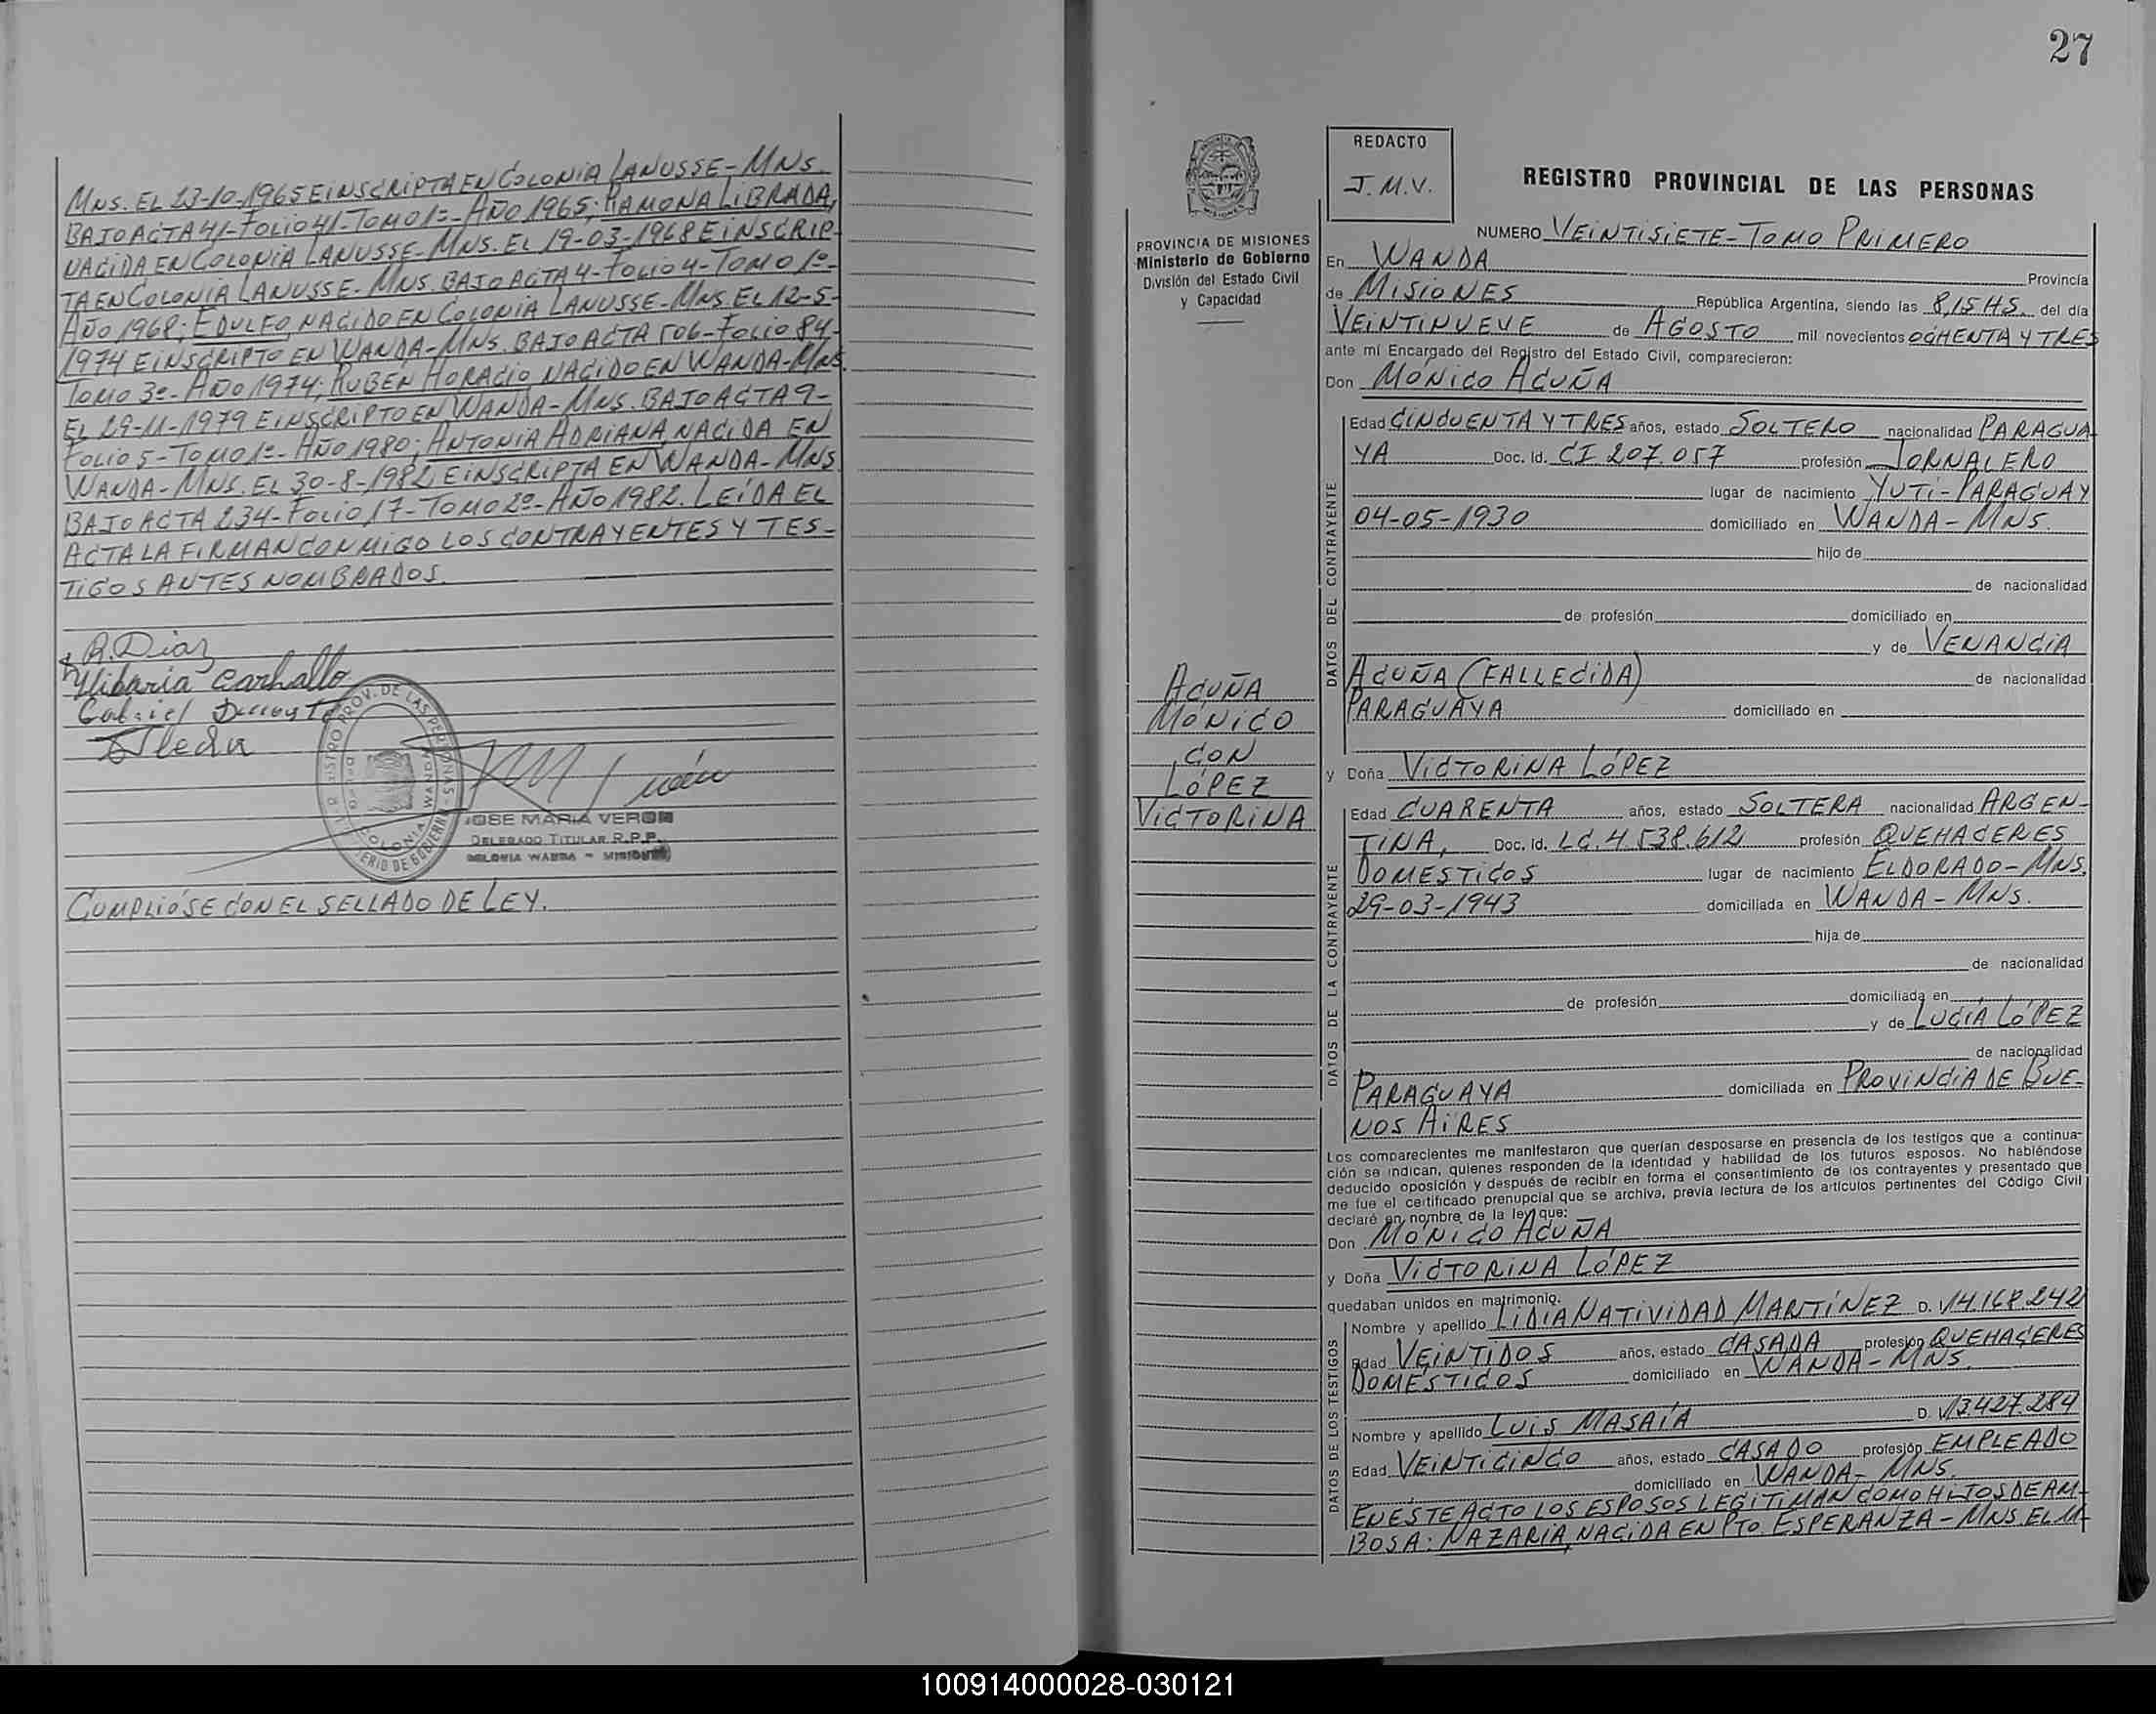 MNS. EL 23-10-1965 E INSCRIPTA EN COLONIA LANUSSE-MNS.
BAJO ACTA 41-FOLIO 41-TOMO 1º-AÑO 1965; RAMONA LIBRADA,
NACIDA EN COLONIA LANUSSE-MNS. EL 19-03-1968 E INSCRIP-
TA EN COLONIA LANUSSE-MNS. BAJO ACTA 4-FOLIO 4-TOMO 1º-
AÑO 1968; EDULFO, NACIDO EN COLONIA LANUSSE-MNS. EL 12-5-
1974 E INSCRIPTO EN WANDA-MNS. BAJO ACTA 506-FOLIO 84-
TOMO 3º-AÑO 1974; RUBEN HORACIO, NACIDO EN WANDA-MNS.
EL 29-11-1979 E INSCRIPTO EN WANDA-MNS. BAJO ACTA 9-
FOLIO 5-TOMO 1º-AÑO 1980; ANTONIA ADRIANA, NACIDA EN
WANDA-MNS. EL 30-8-1982, E INSCRIPTA EN WANDA-MNS
BAJO ACTA 234-FOLIO 17-TOMO 2º-AÑO 1982. LEÍDA EL
ACTA LA FIRMAN CONMIGO LOS CONTRAYENTES Y TES-
TIGOS ANTES NOMBRADOS.
R. Diaz
Carballo
Gabriel
JOSE MARIA VERON
DELEGADO TITULAR R.P.P.
COLONIA WANDA - MISIONES
CUMPLIÓSE CON EL SELLADO DE LEY.
27
PROVINCIA DE MISIONES
Ministerio de Gobierno
División del Estado Civil
y Capacidad
ACUÑA
MÓNICO
CON
LÓPEZ
VICTORINA
REDACTO
J.M.V.
REGISTRO PROVINCIAL DE LAS PERSONAS
NUMERO VEINTISIETE-TOMO PRIMERO
En WANDA Provincia
de MISIONES República Argentina, siendo las 8,15 HS. del día
VEINTINUEVE de AGOSTO mil novecientos OCHENTA Y TRES
ante mí Encargado del Registro del Estado Civil, comparecieron:
Don MÓNICO ACUÑA
DATOS DEL CONTRAYENTE
Edad CINCUENTA Y TRES años, estado SOLTERO nacionalidad PARAGUA-
YA Doc. Id. CI 207.057 profesión JORNALERO
lugar de nacimiento YUTI-PARAGUAY
04-05-1930 domiciliado en WANDA-MNS.
hijo de
de nacionalidad
de profesión domiciliado en
y de VENANCIA
ACUÑA (FALLECIDA) de nacionalidad
PARAGUAYA domiciliado en
y Doña VICTORINA LÓPEZ
DATOS DE LA CONTRAYENTE
Edad CUARENTA años, estado SOLTERA nacionalidad ARGEN-
TINA, Doc. Id. LC. 4.538.612 profesión QUEHACERES
DOMESTICOS lugar de nacimiento ELDORADO-MNS.
29-03-1943 domiciliada en WANDA-MNS.
hija de
de nacionalidad
de profesión domiciliada en
y de LUCÍA LÓPEZ
de nacionalidad
PARAGUAYA domiciliada en PROVINCIA DE BUE-
NOS AIRES
Los comparecientes me manifestaron que querían desposarse en presencia de los testigos que a continua-
ción se indican, quienes responden de la identidad y habilidad de los futuros esposos. No habiéndose
deducido oposición y después de recibir en forma el consentimiento de los contrayentes y presentado que
me fue el certificado prenupcial que se archiva, previa lectura de los artículos pertinentes del Código Civil
declaré en nombre de la ley que:
Don MÓNICO ACUÑA
y Doña VICTORINA LÓPEZ
quedaban unidos en matrimonio.
DATOS DE LOS TESTIGOS
Nombre y apellido LIDIA NATIVIDAD MARTÍNEZ D. 14.168.242
Edad VEINTIDOS años, estado CASADA profesión QUEHACERES
DOMÉSTICOS domiciliado en WANDA-MNS.
Nombre y apellido LUIS MASAÍA D. 13.427.284
Edad VEINTICINCO años, estado CASADO profesión EMPLEADO
domiciliado en WANDA-MNS.
EN ÉSTE ACTO LOS ESPOSOS LEGITIMAN COMO HIJOS DE AM-
BOS A: NAZARIA, NACIDA EN PTO. ESPERANZA-MNS. EL 11-
100914000028-030121